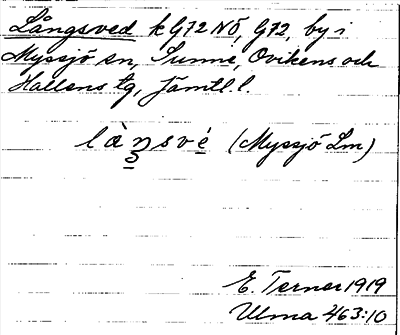 Långsved k G72 NÖ, G72, by i
Myssjö sn, Sunne, Ovikens och
Hallens tg, Jämtl. l.
làŋsvé (Myssjö Lm)
E. Terner 1919
Ulma 463:10